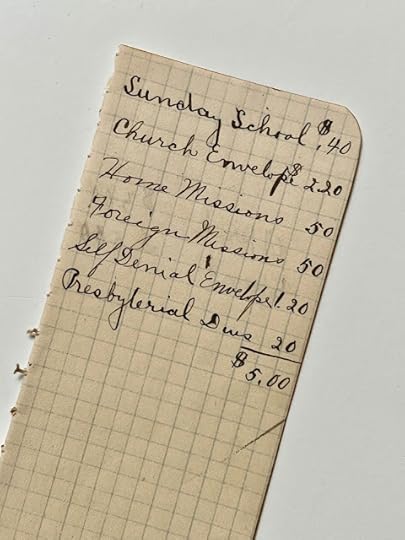 Sunday School $.40
Church Envelope $2.20
Home Missions 50
Foreign Missions 50
Self Denial Envelope 1.20
Presbyterial Dues 20
$5.00